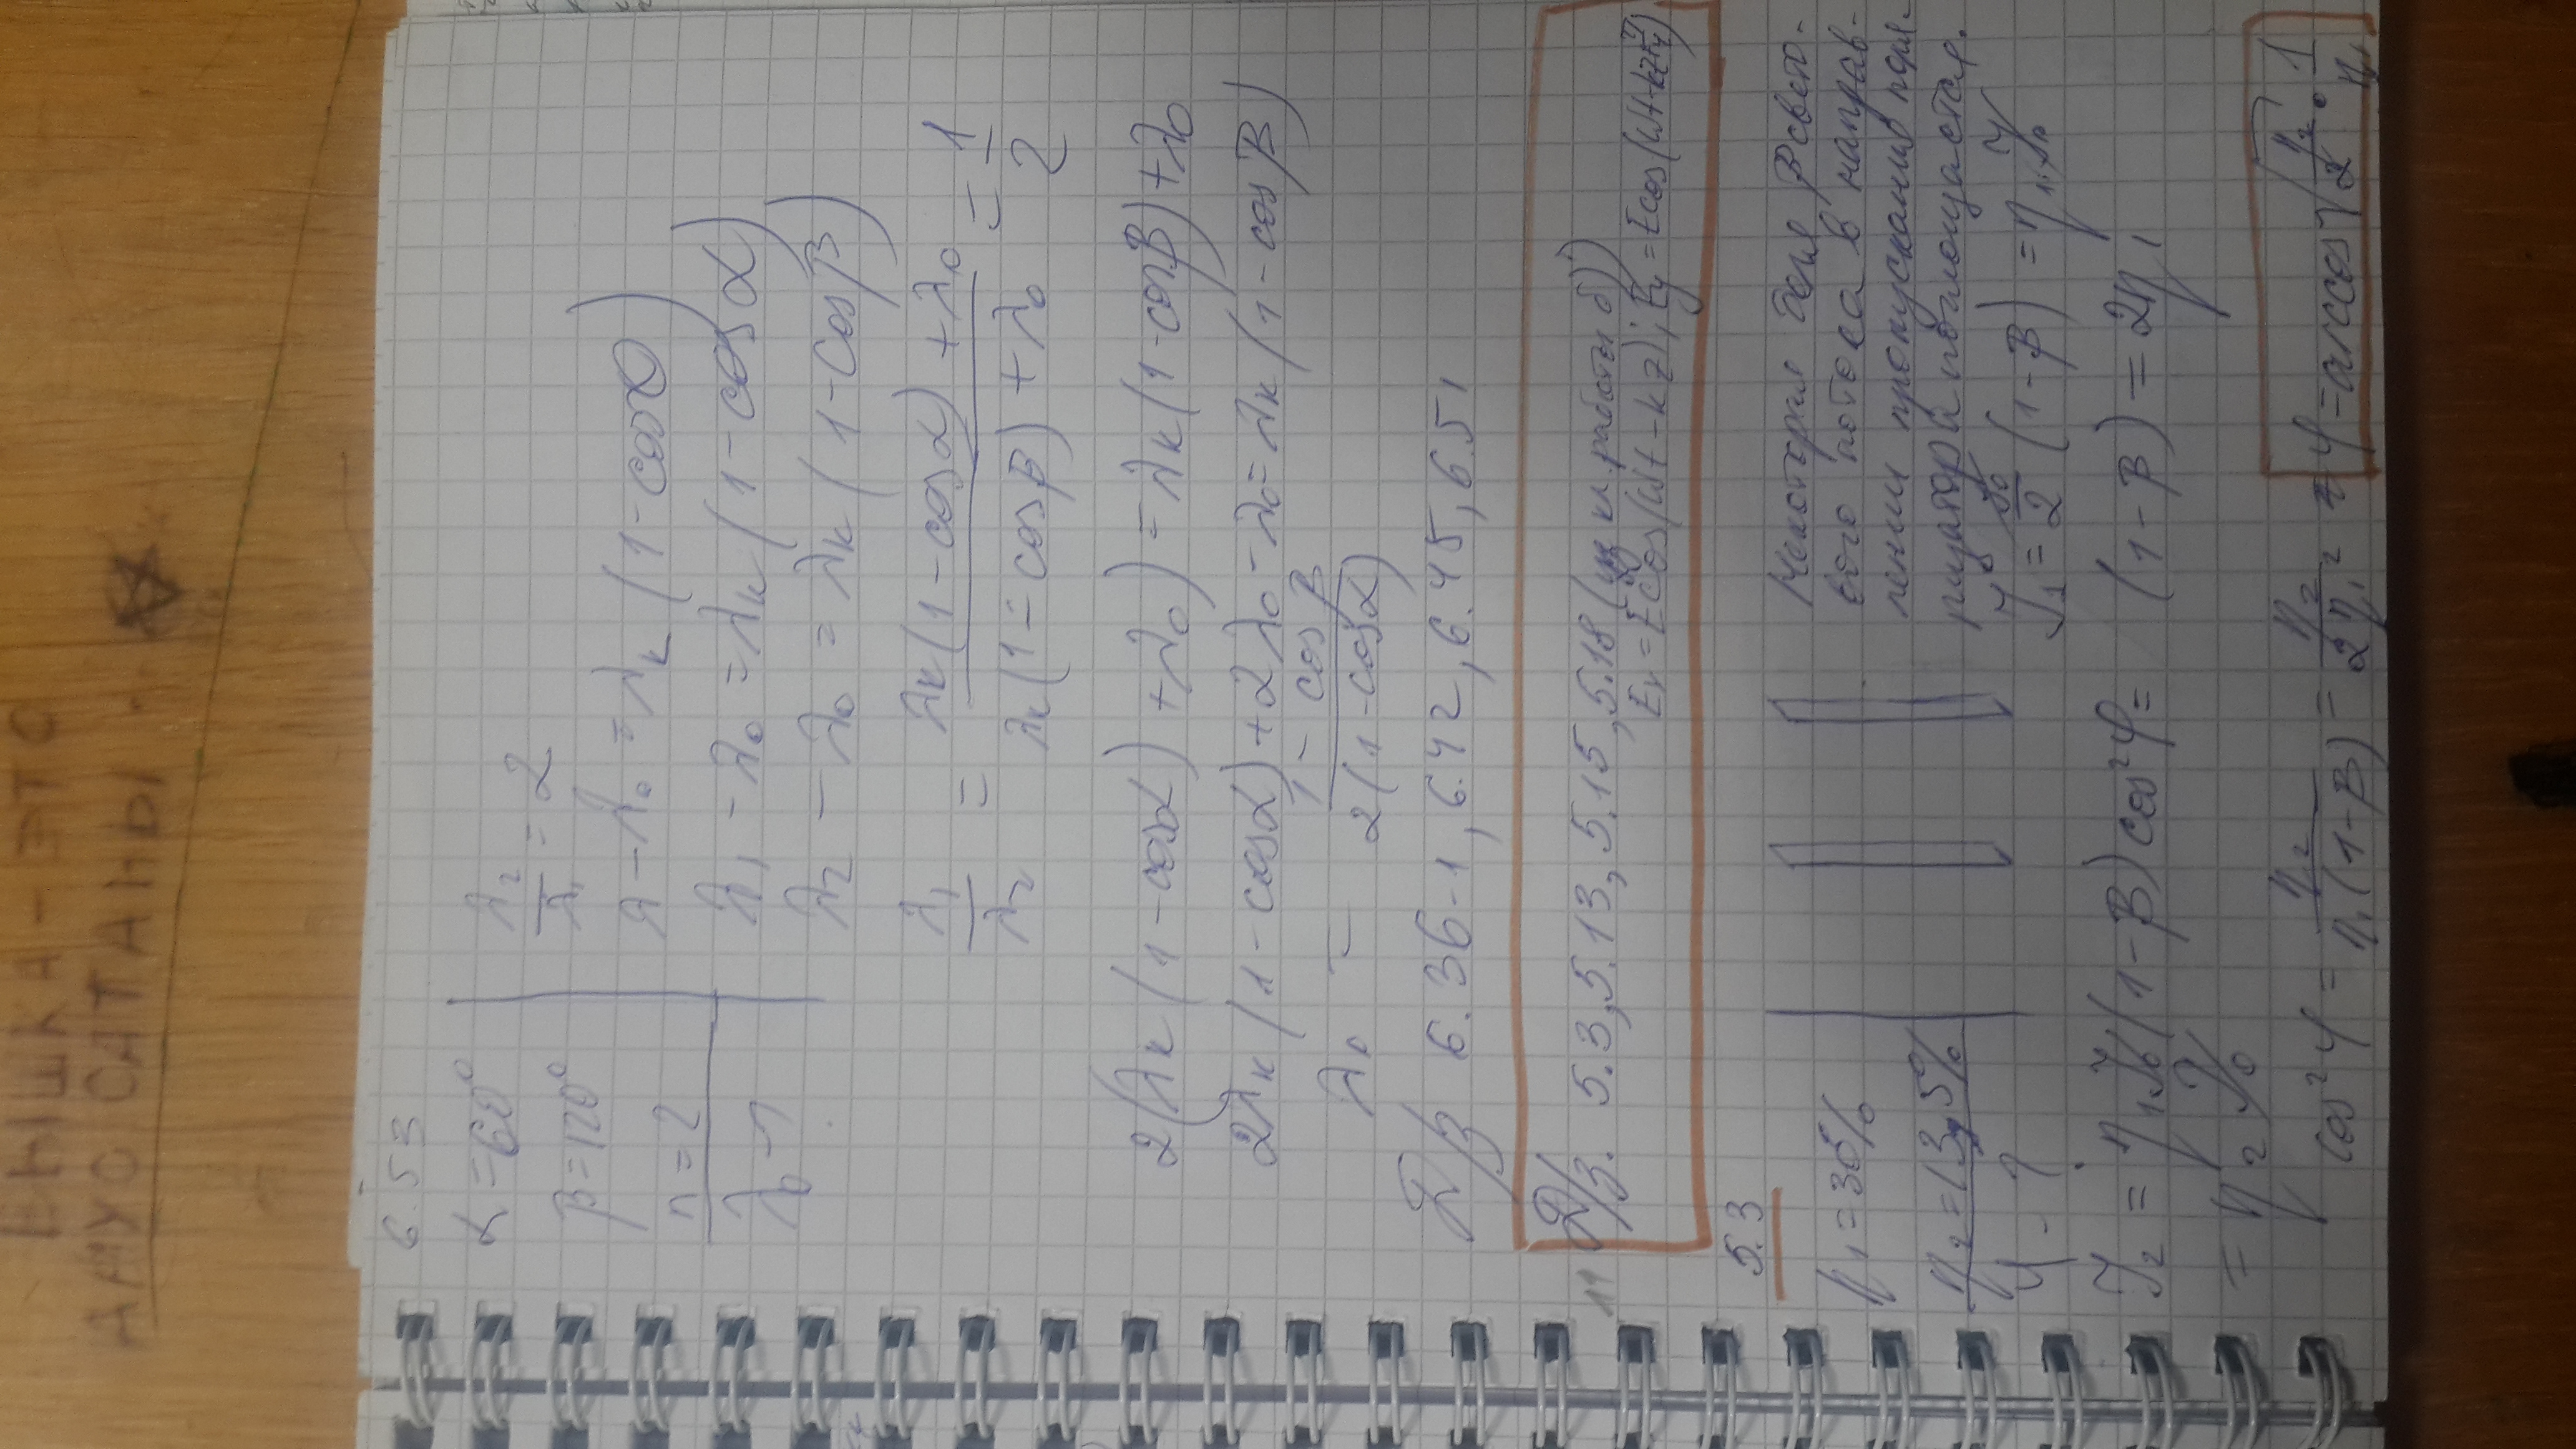 ВЫШКА - ЭТО
ДАУС САТАНЫ
6.53
α = 60°
β = 120°
n = 2
λ₀ - ?
λ₂/λ₁ = 2
λ - λ₀ = λк (1 - cosθ)
λ₁ - λ₀ = λк (1 - cosα)
λ₂ - λ₀ = λк (1 - cosβ)
λ₁/λ₂ = (λк(1 - cosα) + λ₀)/(λк(1 - cosβ) + λ₀) = 1/2
2(λк (1 - cosα) + λ₀) = λк(1 - cosβ) + λ₀
2λк (1 - cosα) + 2λ₀ - λ₀ = λк (1 - cosβ)
λ₀ = (1 - cosβ)/(2(1 - cosα))
Д/З 6.36-1, 6.42, 6.45, 6.51
11 Д/З. 5.3, 5.13, 5.15, 5.18 (из кл. работы б))
Eₓ = E cos(ωt - kz); Ey = E cos(ωt - kz + π/4)
5.3
η₁ = 30%
η₂ = 13,5%
φ - ?
Некоторая доля β свето-
вого потока в направ-
лении пропускания поля-
ризатора поглощается.
J₁ = J₀/2 (1 - β) = η₁J₀
J₂ = η₁J₀(1 - β) cos²φ = (1 - β) = 2η₁
= η₂J₀
cos²φ = η₂/(η₁(1 - β)) = η₂/(2η₁²) => φ = arccos √(η₂/2) · 1/η₁